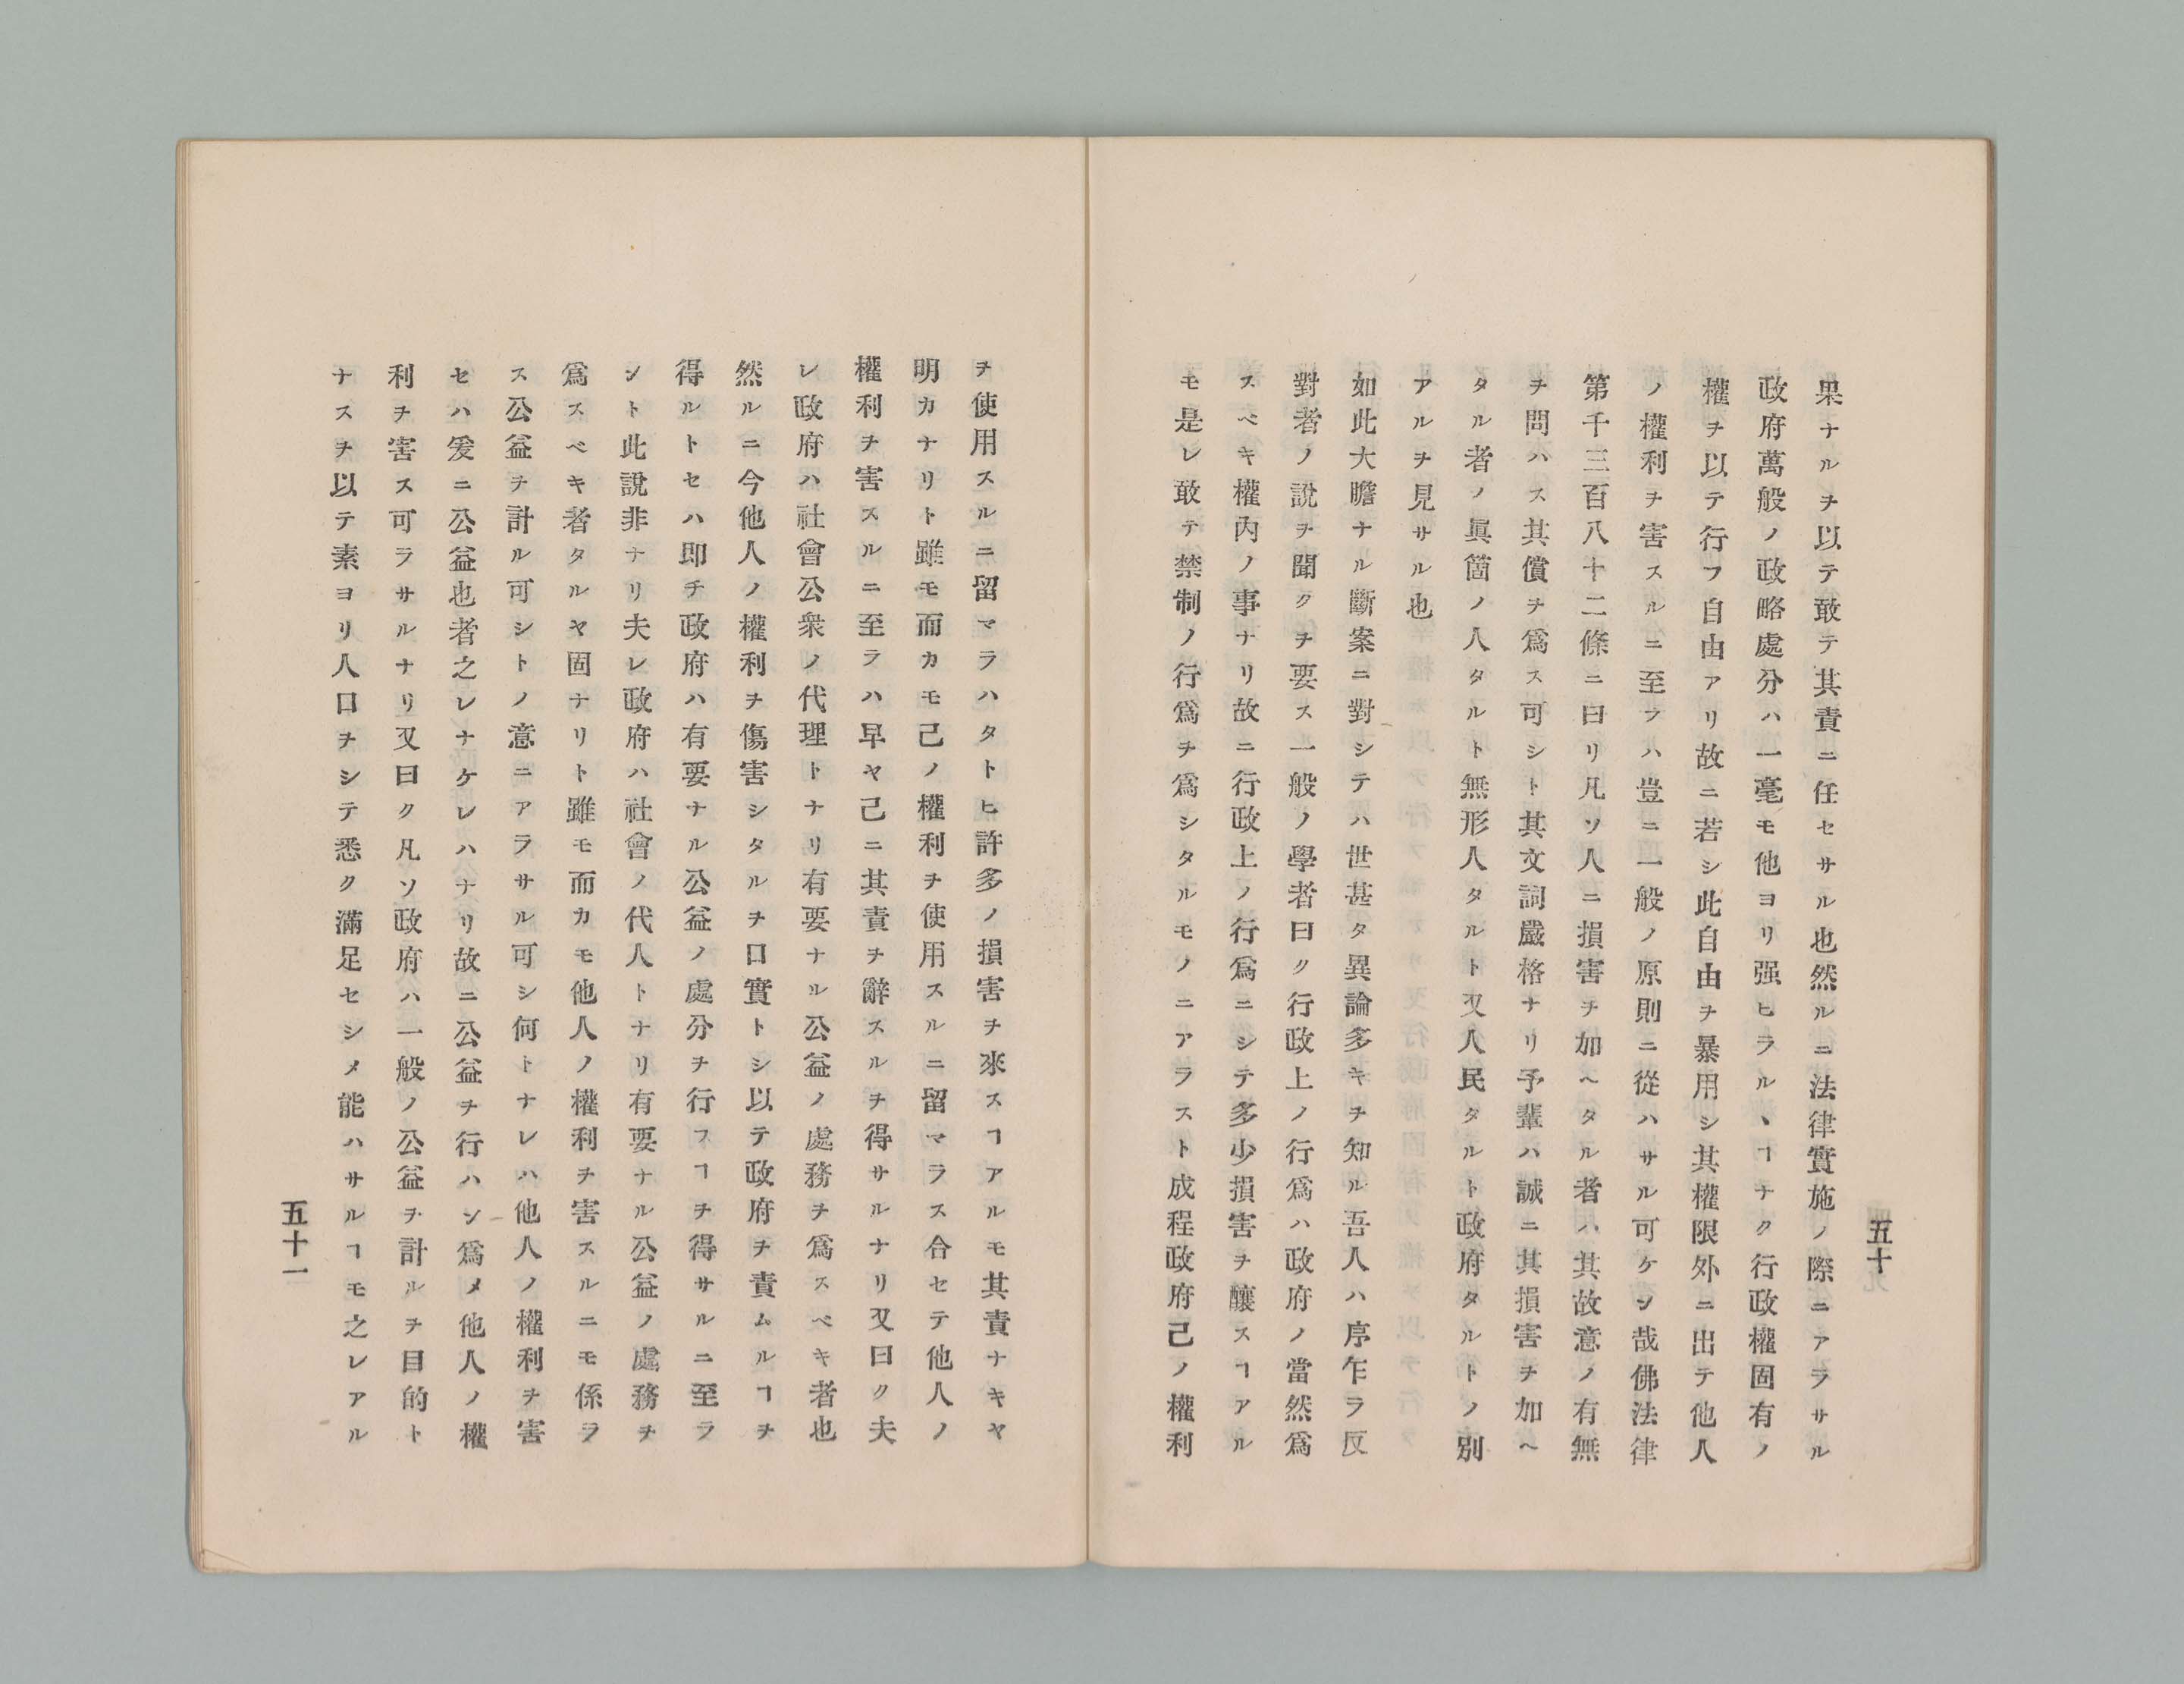 果ナルヲ以テ敢テ其責ニ任セサル也然ルニ法律實施ノ際ニアラサル
政府萬般ノ政略處分ハ一毫モ他ヨリ强ヒラルヽヿナク行政權固有ノ
權ヲ以テ行フ自由アリ故ニ若シ此自由ヲ暴用シ其權限外ニ出テ他人
ノ權利ヲ害スルニ至ラハ豈ニ一般ノ原則ニ從ハサル可ケン哉佛法律
第千三百八十二條ニ曰リ凡ソ人ニ損害ヲ加ヘタル者ハ其故意ノ有無
ヲ問ハス其償ヲ爲ス可シト其文詞嚴格ナリ予輩ハ誠ニ其損害ヲ加ヘ
タル者ノ眞箇ノ人タルト無形人タルト又人民タルト政府タルトノ別
アルヲ見サル也
如此大膽ナル斷案ニ對シテハ世甚タ異論多キヲ知ル吾人ハ序乍ラ反
對者ノ說ヲ聞クヲ要ス一般ノ學者曰ク行政上ノ行爲ハ政府ノ當然爲
スベキ權內ノ事ナリ故ニ行政上ノ行爲ニシテ多少損害ヲ釀スヿアル
モ是レ敢テ禁制ノ行爲ヲ爲シタルモノニアラスト成程政府己ノ權利
五十
ヲ使用スルニ留マラハタトヒ許多ノ損害ヲ來スヿアルモ其責ナキヤ
明カナリト雖モ而カモ己ノ權利ヲ使用スルニ留マラス合セテ他人ノ
權利ヲ害スルニ至ラハ早ヤ己ニ其責ヲ辭スルヲ得サルナリ又曰ク夫
レ政府ハ社會公衆ノ代理トナリ有要ナル公益ノ處務ヲ爲スベキ者也
然ルニ今他人ノ權利ヲ傷害シタルヲ口實トシ以テ政府ヲ責ムルヿヲ
得ルトセハ即チ政府ハ有要ナル公益ノ處分ヲ行フヿヲ得サルニ至ラ
ント此說非ナリ夫レ政府ハ社會ノ代人トナリ有要ナル公益ノ處務ヲ
爲スベキ者タルヤ固ナリト雖モ而カモ他人ノ權利ヲ害スルニモ係ラ
ス公益ヲ計ル可シトノ意ニアラサル可シ何トナレハ他人ノ權利ヲ害
セハ爰ニ公益也者之レナケレハナリ故ニ公益ヲ行ハン爲メ他人ノ權
利ヲ害ス可ラサルナリ又曰ク凡ソ政府ハ一般ノ公益ヲ計ルヲ目的ト
ナスヲ以テ素ヨリ人口ヲシテ悉ク滿足セシメ能ハサルヿモ之レアル
五十一